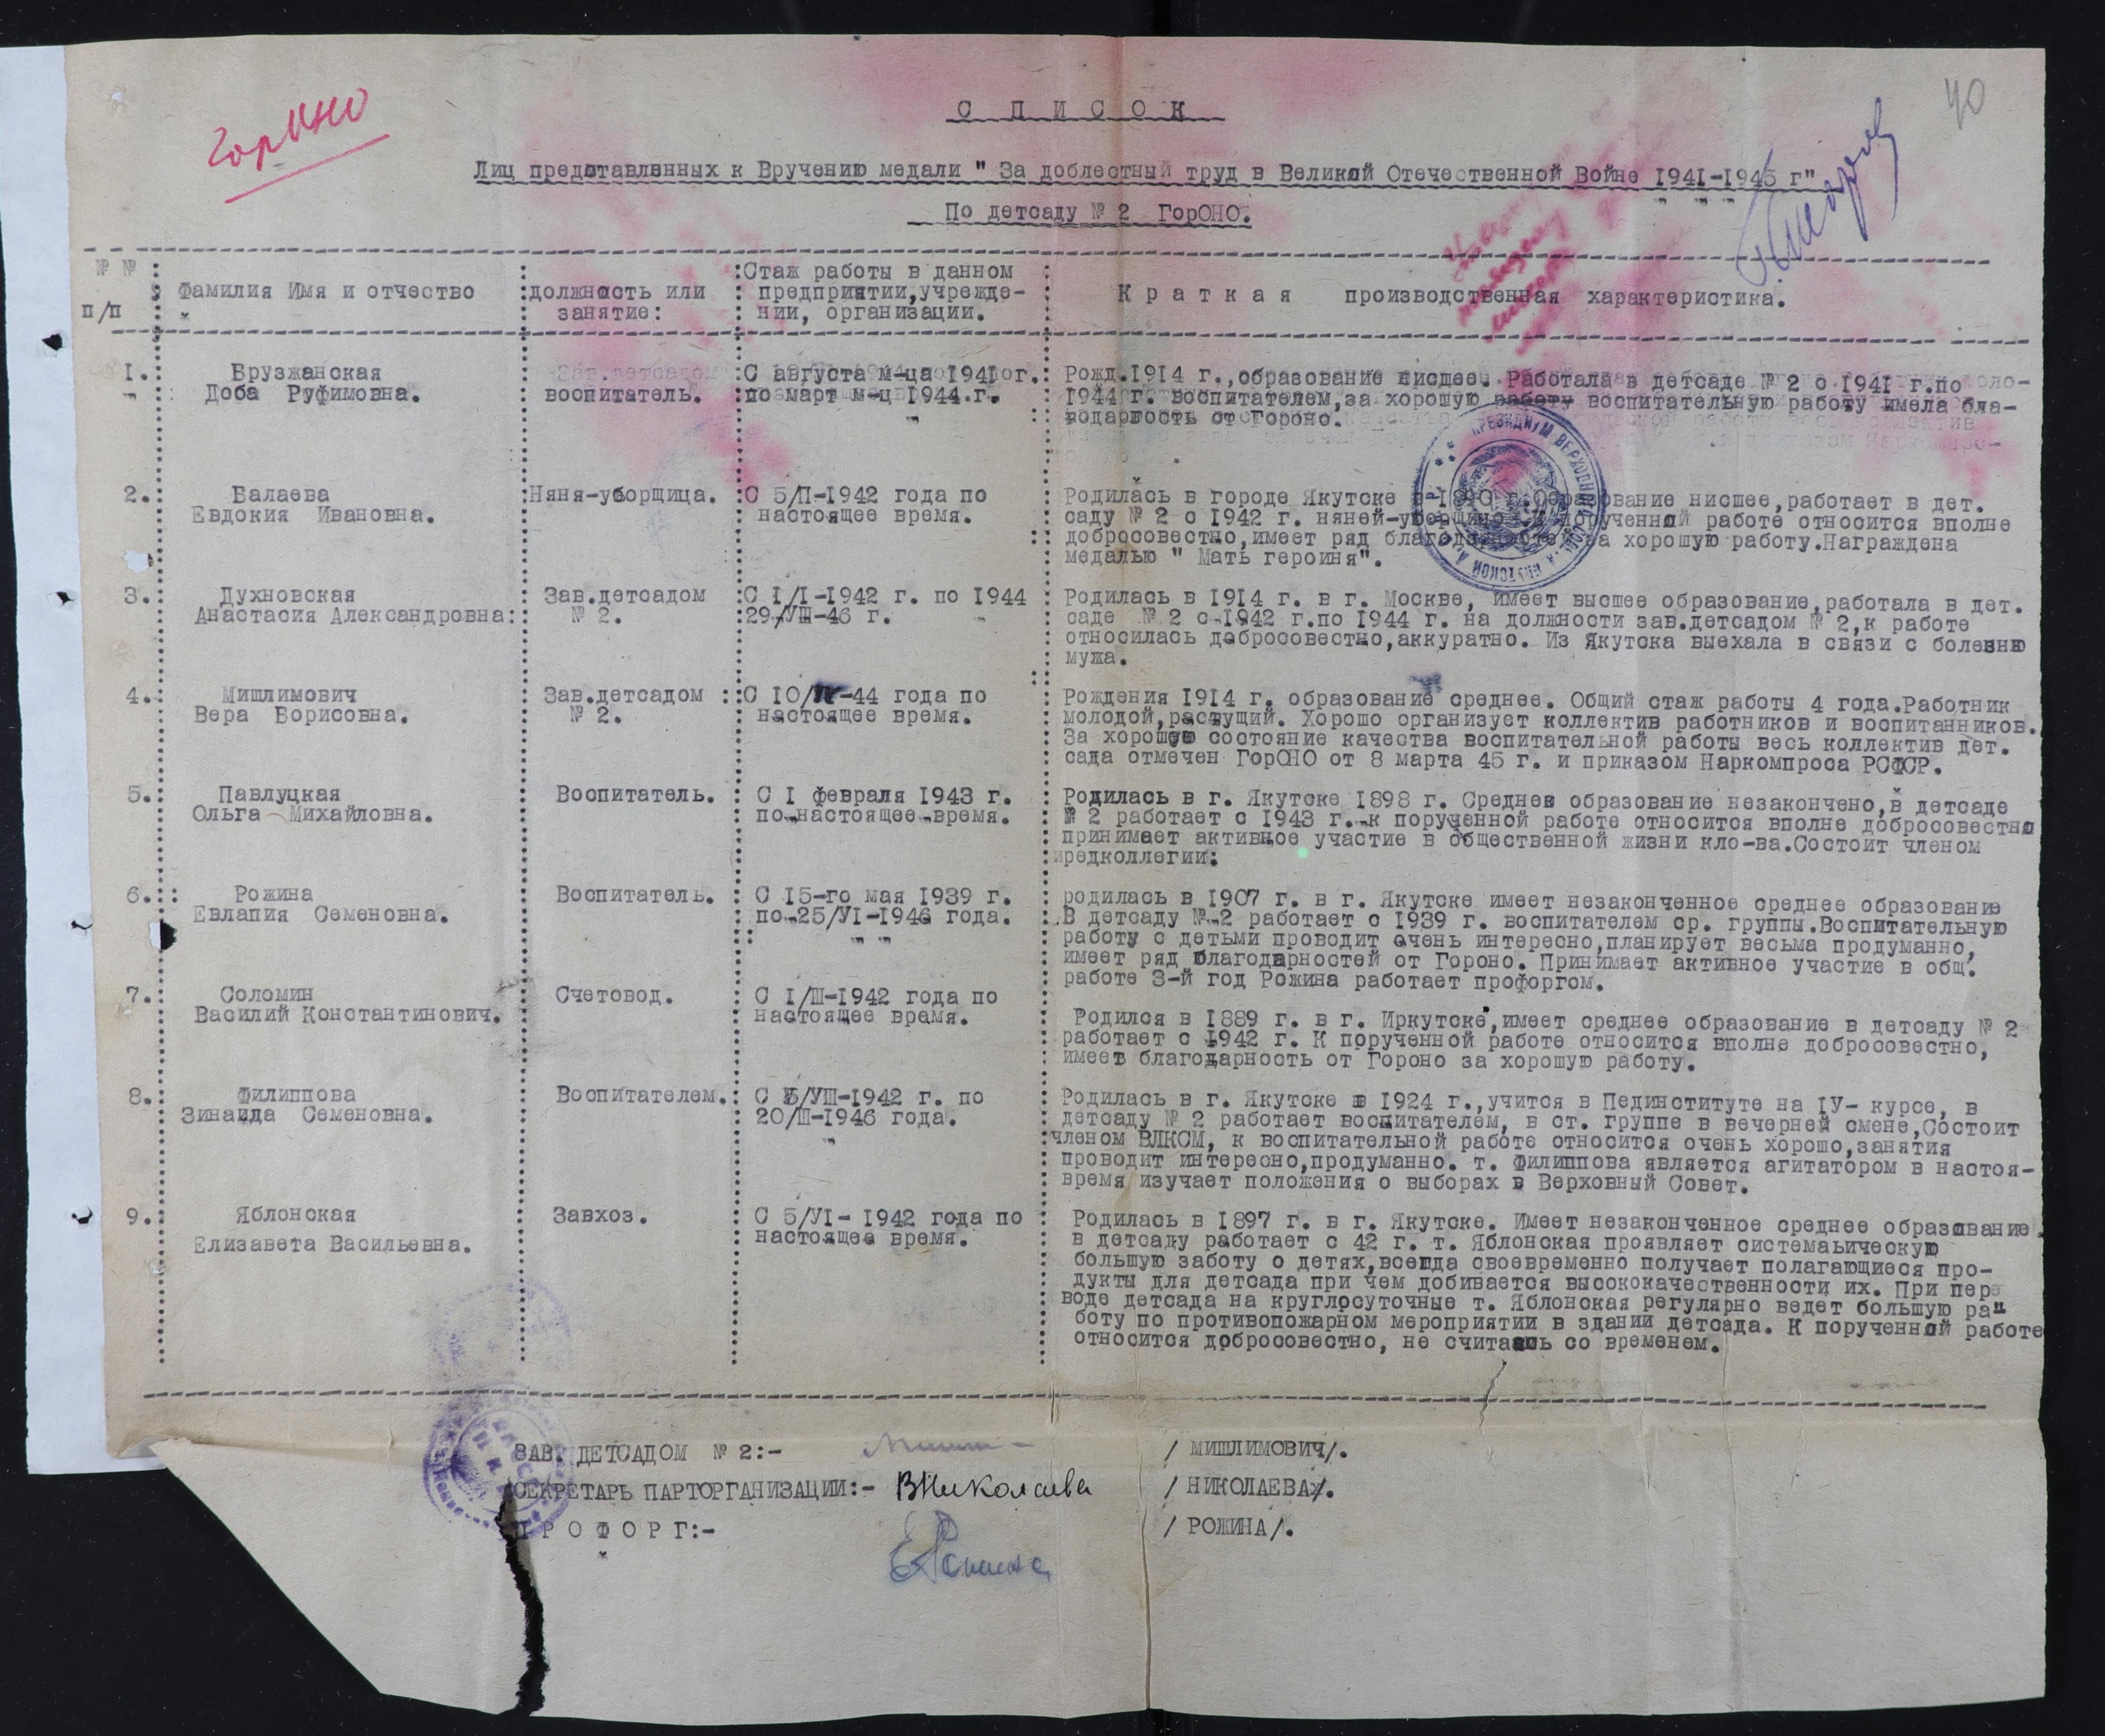 ГорОНО
40
С П И С О К
Лиц предоставленных к Вручению медали " За доблестный труд в Великой Отечественной Войне 1941-1945 г"
По детсаду № 2 ГорОНО.
№ №
п/п
Фамилия Имя и отчество
должность или
занятие:
Стаж работы в данном
предприятии,учрежде-
нии, организации.
К р а т к а я производственная характеристика.
1. Врузжанская
Доба Руфимовна.
воспитатель.
С августа м-ца 1941 г.
по март м-ц 1944 г.
Рожд.1914 г.,образование висшее. Работала в детсаде № 2 с 1941 г.по
1944 г. воспитателем,за хорошую работу воспитательную работу имела бла-
годарность от Гороно.
2. Балаева
Евдокия Ивановна.
Няня-уборщица.
С 5/П-1942 года по
настоящее время.
Родилась в городе Якутске в 1890 г. Образование нисшее,работает в дет.
саду № 2 с 1942 г. няней-уборщицей порученной работе относится вполне
добросовестно,имеет ряд благодарностей за хорошую работу.Награждена
медалью " Мать героиня".
3. Духновская
Анастасия Александровна:
Зав.детсадом
№ 2.
С 1/I-1942 г. по 1944
29/УШ-46 г.
Родилась в 1914 г. в г. Москве, имеет высшее образование,работала в дет.
саде № 2 с 1942 г.по 1944 г. на должности зав.детсадом № 2,к работе
относилась добросовестно,аккуратно. Из Якутска выехала в связи с болезню
мужа.
4. Мишлимович
Вера Борисовна.
Зав.детсадом
№ 2.
С 10/IV-44 года по
настоящее время.
Рождения 1914 г. образование среднее. Общий стаж работы 4 года.Работник
молодой,растущий. Хорошо организует коллектив работников и воспитанников.
За хорошую состояние качества воспитательной работы весь коллектив дет.
сада отмечен ГорОНО от 8 марта 45 г. и приказом Наркомпроса РСФСР.
5. Павлуцкая
Ольга Михайловна.
Воспитатель.
С 1 февраля 1943 г.
по настоящее время.
Родилась в г. Якутске 1898 г. Среднее образование незакончено,в детсаде
№ 2 работает с 1943 г. к порученной работе относится вполне добросовестно
принимает активное участие в общественной жизни кло-ва.Состоит членом
редколлегии:
6. Рожина
Евлапия Семеновна.
Воспитатель.
С 15-го мая 1939 г.
по 25/УI-1946 года.
родилась в 1907 г. в г. Якутске имеет незаконченное среднее образование
В детсаду № 2 работает с 1939 г. воспитателем ср. группы.Воспитательную
работу с детьми проводит очень интересно,планирует весьма продуманно,
имеет ряд благодарностей от Гороно. Принимает активное участие в общ.
работе 3-й год Рожина работает профоргом.
7. Соломин
Василий Константинович.
Счетовод.
С 1/Ш-1942 года по
настоящее время.
Родился в 1889 г. в г. Иркутске,имеет среднее образование в детсаду № 2
работает с 1942 г. К порученной работе относится вполне добросовестно,
имеет благодарность от Гороно за хорошую работу.
8. Филиппова
Зинаида Семеновна.
Воспитателем.
С 15/УШ-1942 г. по
20/Ш-1946 года.
Родилась в г. Якутске в 1924 г.,учится в Пединституте на IУ- курсе, в
детсаду № 2 работает воспитателем, в ст. группе в вечерней смене,Состоит
членом ВЛКСМ, к воспитательной работе относится очень хорошо,занятия
проводит интересно,продуманно. т. Филиппова является агитатором в настоя-
время изучает положения о выборах в Верховный Совет.
9. Яблонская
Елизавета Васильевна.
Завхоз.
С 5/УI- 1942 года по
настоящее время.
Родилась в 1897 г. в г. Якутске. Имеет незаконченное среднее образование.
в детсаду работает с 42 г. т. Яблонская проявляет системаьическую
большую заботу о детях,всегда своевременно получает полагающиеся про-
дукты для детсада при чем добивается высококачественности их. При пере
воде детсада на круглосуточные т. Яблонская регулярно ведет большую ра
боту по противопожарном мероприятии в здании детсада. К порученной работе
относится добросовестно, не считаясь со временем.
ЗАВ. ДЕТСАДОМ № 2:- / МИШЛИМОВИЧ/.
СЕКРЕТАРЬ ПАРТОРГАНИЗАЦИИ:- ВНиколаева / НИКОЛАЕВА/.
П Р О Ф О Р Г:- ЕРожина / РОЖИНА/.